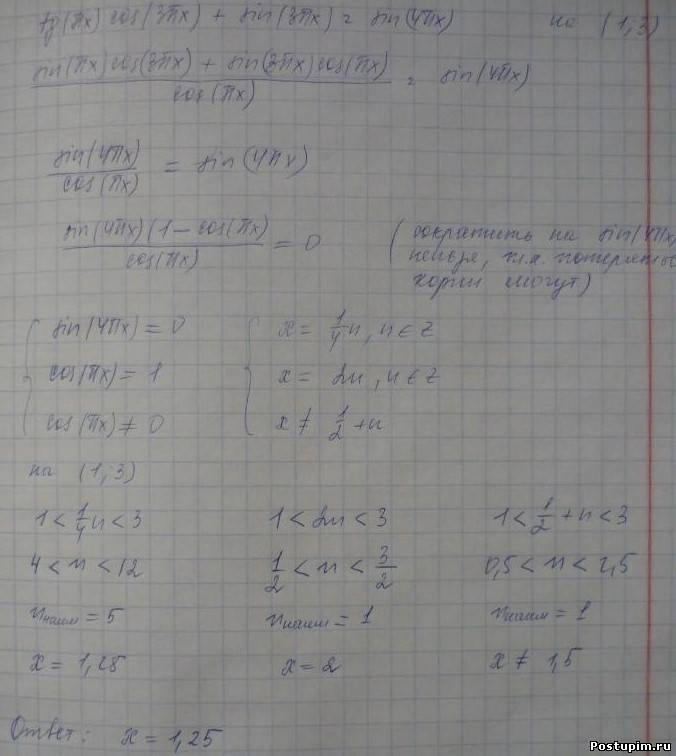 tg(πx) cos(3πx) + sin(3πx) = sin(4πx) на (1;3)
sin(πx)cos(3πx) + sin(3πx)cos(πx) / cos(πx) = sin(4πx)
sin(4πx) / cos(πx) = sin(4πx)
sin(4πx)(1-cos(πx)) / cos(πx) = 0 (сократить на sin(4πx)
нельзя, т.к. потеряться
корни могут)
sin(4πx) = 0 x = 1/4 n, n ∈ Z
cos(πx) = 1 x = 2n, n ∈ Z
cos(πx) ≠ 0 x ≠ 1/2 + n
на (1;3)
1 < 1/4 n < 3 1 < 2n < 3 1 < 1/2 + n < 3
4 < n < 12 1/2 < n < 3/2 0,5 < n < 2,5
nнаим = 5 nнаим = 1 nнаим = 1
x = 1,25 x = 2 x ≠ 1,5
Ответ: x = 1,25
Postupim.ru